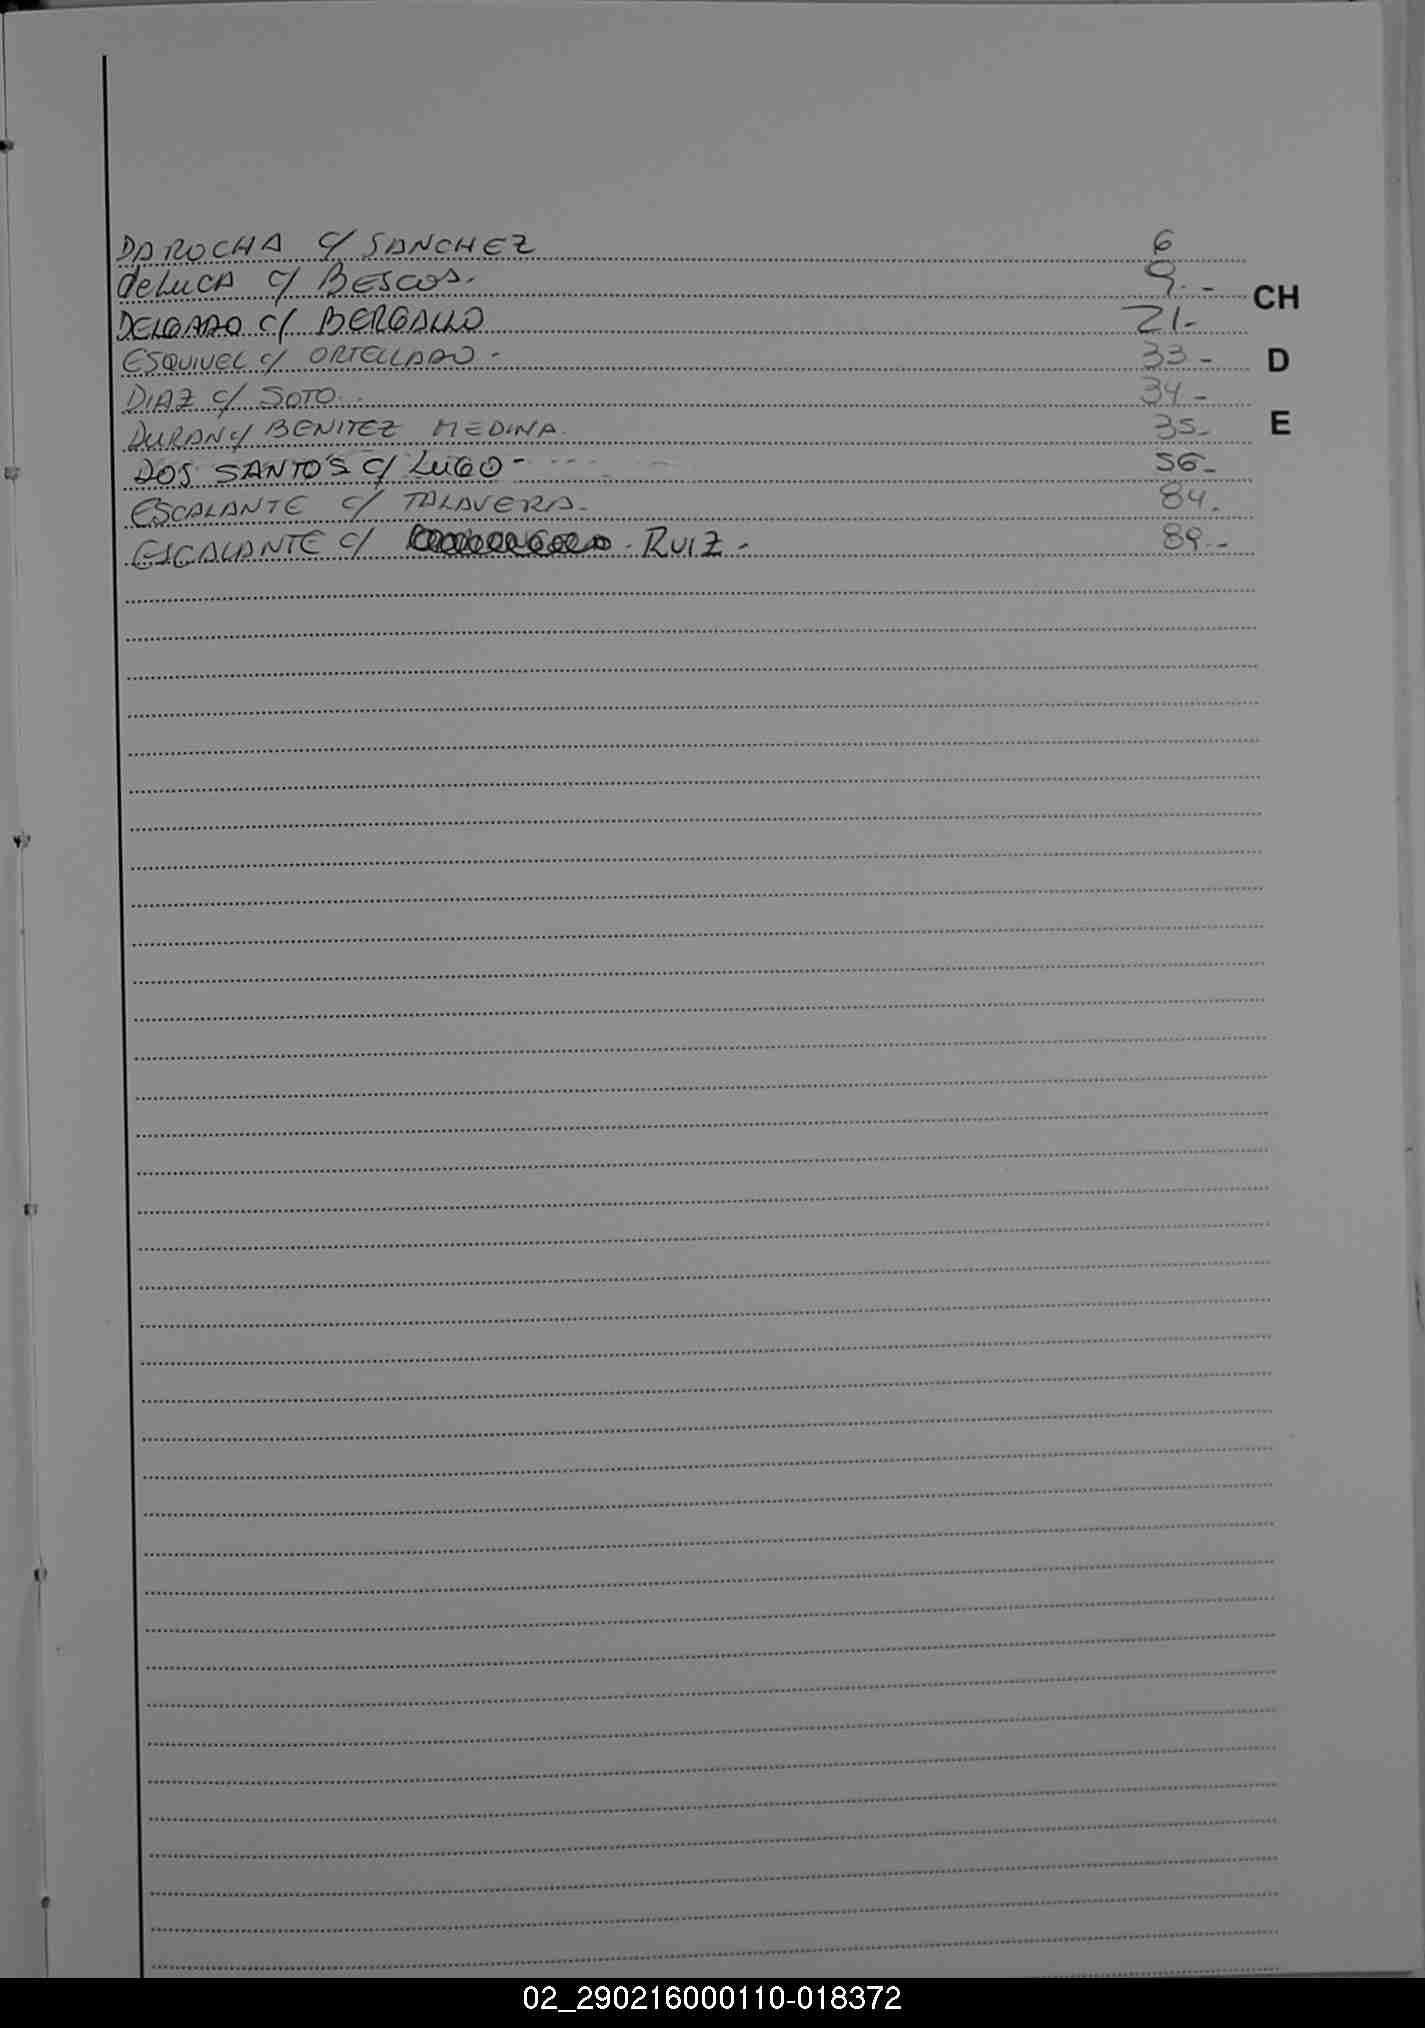 DA ROCHA c/ SANCHEZ 6
deLuCA c/ BESCOS.- 9.-
CH
DELGADO c/ BERGALLO 21.-
ESQUIVEL c/ ORTELLADO - 33 -
D
DIAZ c/ SOTO. 34 -
DURAN c/ BENITEZ MEDINA. 35.-
E
DOS SANTOS c/ LUGO - 56.-
ESCALANTE c/ TALAVERA.- 84.
ESCALANTE c/ - RUIZ - 89.-
02_290216000110-018372